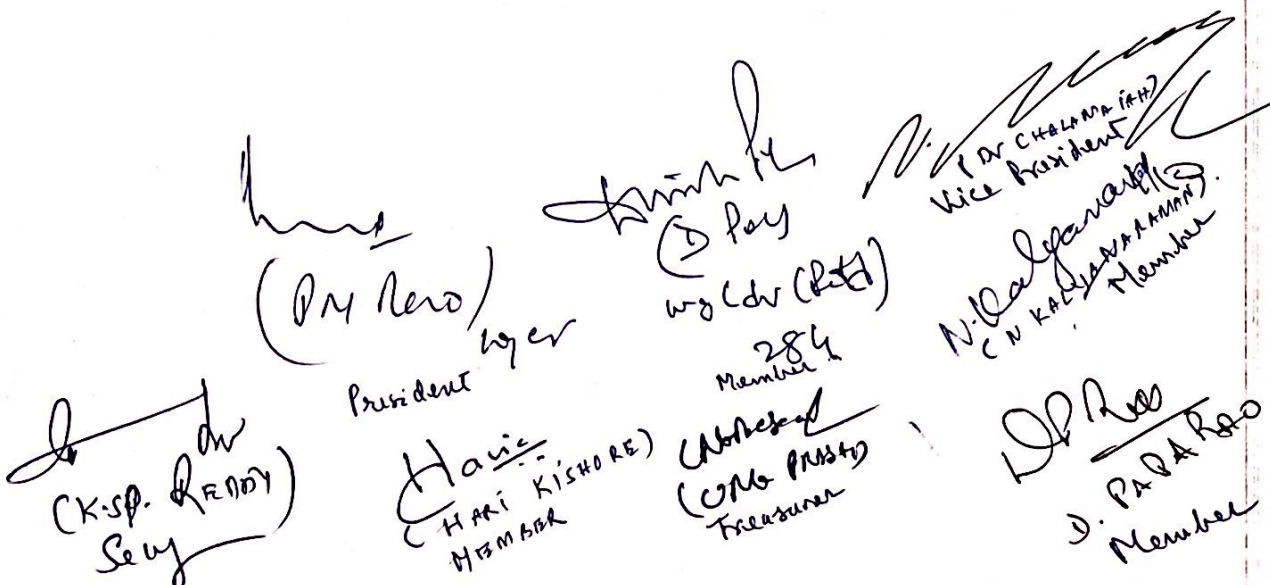 (PM Rao)
President
(D Paul
wg Cdr (Retd)
284
Member
(DV CHALAMAIAH)
Vice President
N. Kalyanaraman
(N KALYANARAMAN).
Member
(K.SP. REDDY)
Secy
Hari
(HARI KISHORE)
MEMBER
PRASAD)
Treasurer
DP Rao
D. PAPA RAO
Member